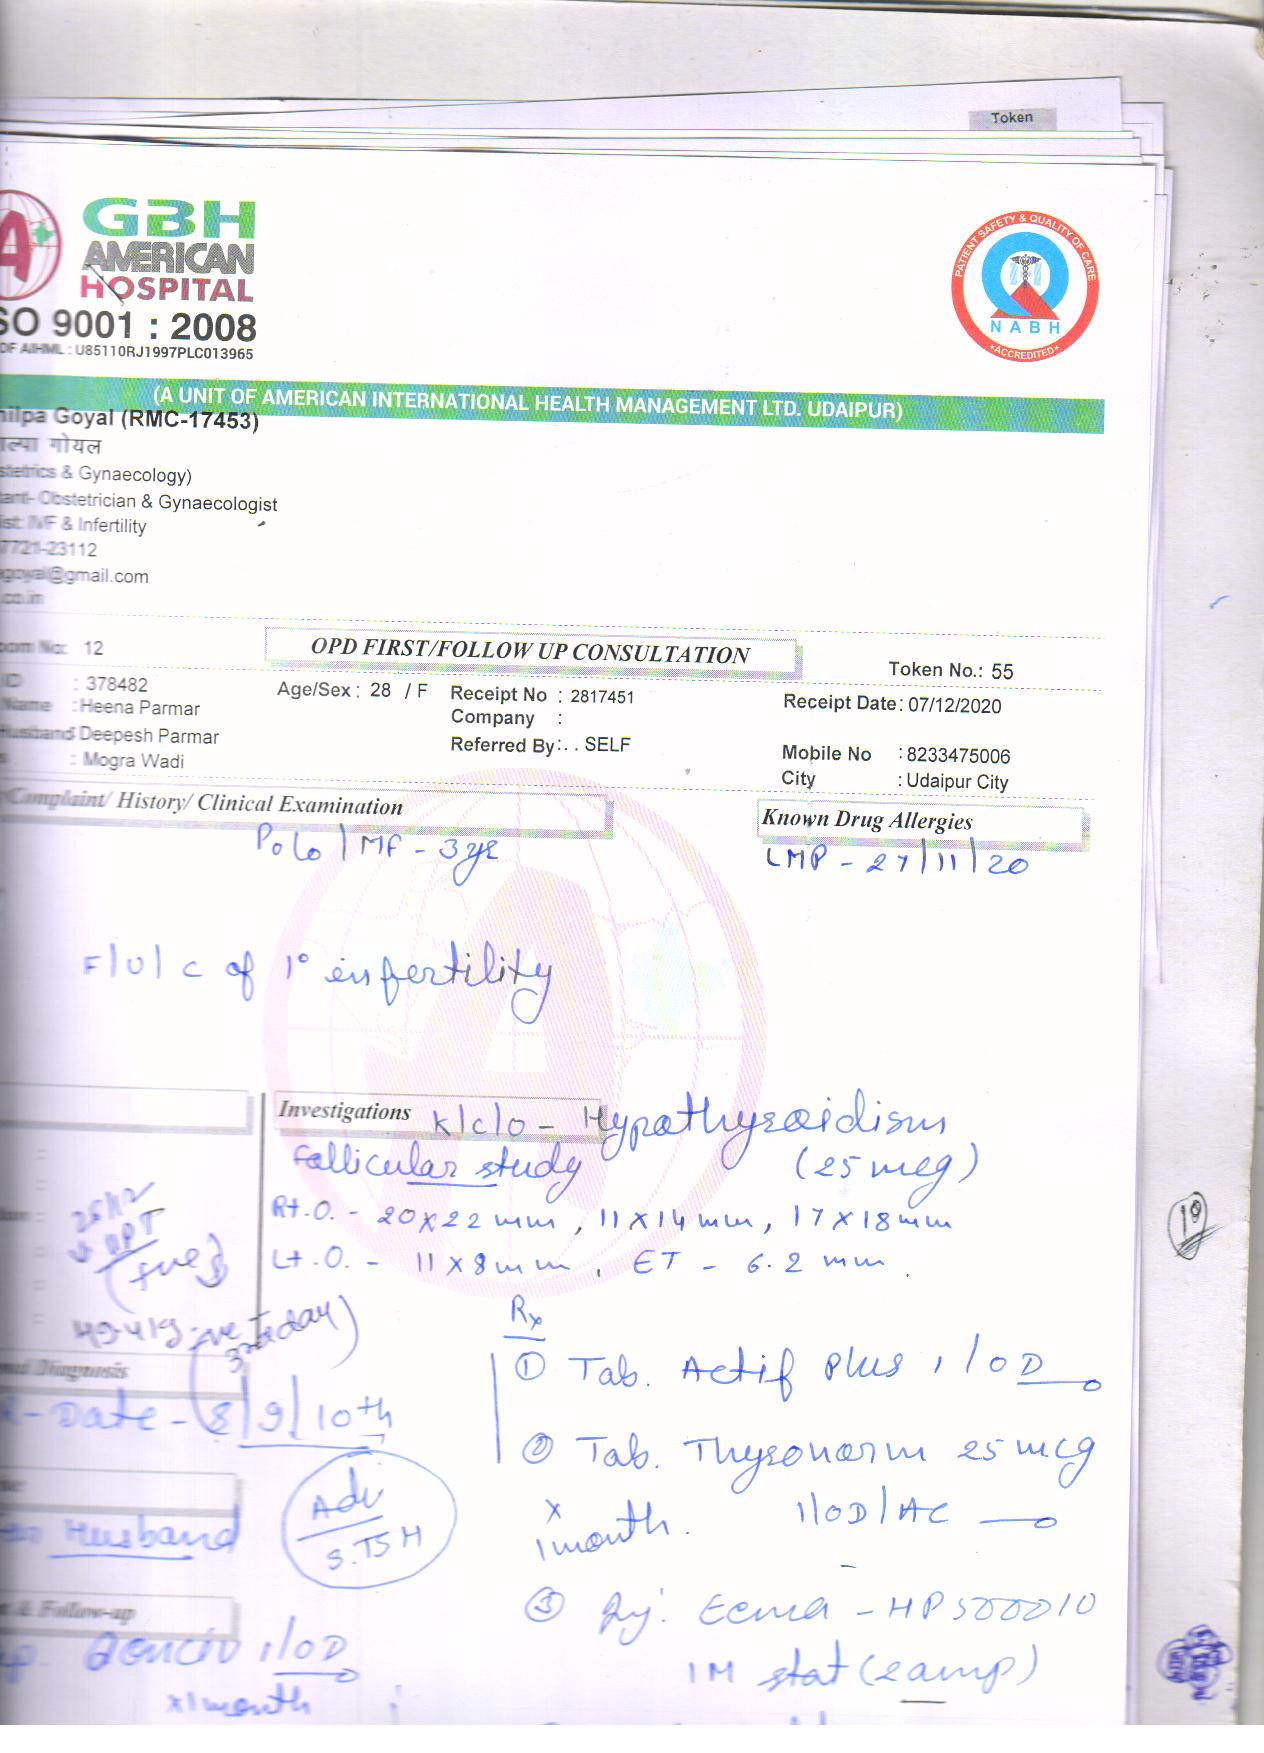 Token
GBH
AMERICAN
HOSPITAL
SO 9001 : 2008
OF AIHML : U85110RJ1997PLC013965
PATIENT SAFETY & QUALITY OF CARE
NABH
ACCREDITED
(A UNIT OF AMERICAN INTERNATIONAL HEALTH MANAGEMENT LTD. UDAIPUR)
hilpa Goyal (RMC-17453)
ल्पा गोयल
stetrics & Gynaecology)
tant- Obstetrician & Gynaecologist
ist: IVF & Infertility
7721-23112
goyal@gmail.com
.co.in
oom No: 12
OPD FIRST/FOLLOW UP CONSULTATION
Token No.: 55
ID : 378482 Age/Sex : 28 / F Receipt No : 2817451 Receipt Date : 07/12/2020
Name : Heena Parmar Company :
Husband : Deepesh Parmar Referred By : . . SELF Mobile No : 8233475006
s : Mogra Wadi City : Udaipur City
Complaint/ History/ Clinical Examination
Known Drug Allergies
P0L0 | MF - 3 yr
LMP - 27/11/20
F/U/C of 1° infertility
Investigations K/C/O - Hypothyroidism
Follicular study (25 mcg)
Rt. O. - 20 x 22 mm, 11 x 14 mm, 17 x 18 mm
Lt. O. - 11 x 8 mm, ET - 6.2 mm.
UPT
3rd day
Rx
① Tab. Actif Plus 1/OD
② Tab. Thyronorm 25 mcg
x 1 month. 1/OD/AC
③ Inj. Eema - HP 5000 IU
IM stat (2 amp)
onal Diagnosis
R-Date - 8/9/10th
Husband
Adv
S. TSH
& Follow-up
1/OD
x 1 month
10